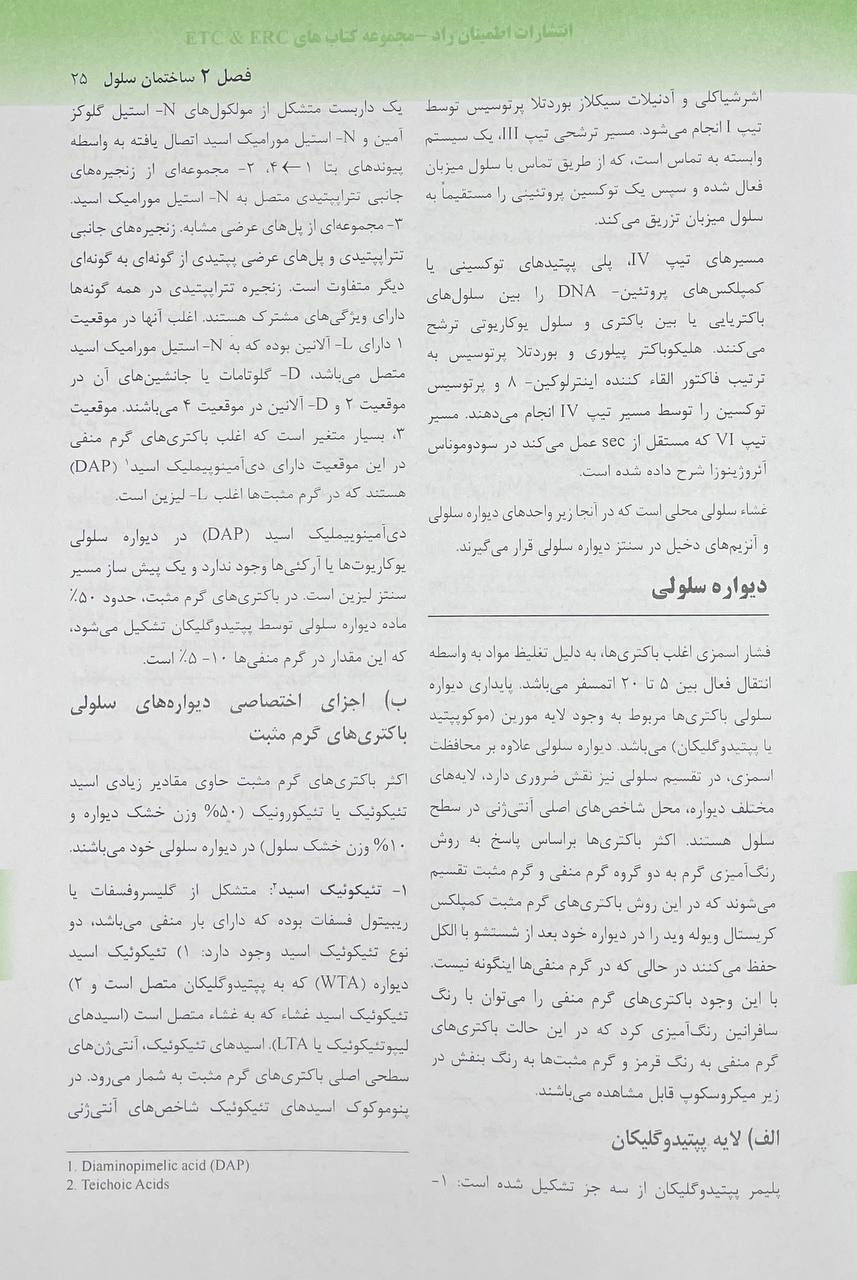 انتشارات اطمینان راد – مجموعه کتاب های ETC & ERC
فصل ۲ ساختمان سلول ۲۵
اشرشیاکلی و آدنیلات سیکلاز بوردتلا پرتوسیس توسط
تیپ I انجام می‌شود. مسیر ترشحی تیپ III، یک سیستم
وابسته به تماس است، که از طریق تماس با سلول میزبان
فعال شده و سپس یک توکسین پروتئینی را مستقیماً به
سلول میزبان تزریق می‌کند.
مسیرهای تیپ IV، پلی پپتیدهای توکسینی یا
کمپلکس‌های پروتئین- DNA را بین سلول‌های
باکتریایی یا بین باکتری و سلول یوکاریوتی ترشح
می‌کنند. هلیکوباکتر پیلوری و بوردتلا پرتوسیس به
ترتیب فاکتور القاء کننده اینترلوکین- ۸ و پرتوسیس
توکسین را توسط مسیر تیپ IV انجام می‌دهند. مسیر
تیپ VI که مستقل از sec عمل می‌کند در سودوموناس
آئروژینوزا شرح داده شده است.
غشاء سلولی محلی است که در آنجا زیر واحدهای دیواره سلولی
و آنزیم‌های دخیل در سنتز دیواره سلولی قرار می‌گیرند.
دیواره سلولی
فشار اسمزی اغلب باکتری‌ها، به دلیل تغلیظ مواد به واسطه
انتقال فعال بین ۵ تا ۲۰ اتمسفر می‌باشد. پایداری دیواره
سلولی باکتری‌ها مربوط به وجود لایه مورین (موکوپپتید
یا پپتیدوگلیکان) می‌باشد. دیواره سلولی علاوه بر محافظت
اسمزی، در تقسیم سلولی نیز نقش ضروری دارد، لایه‌های
مختلف دیواره، محل شاخص‌های اصلی آنتی‌ژنی در سطح
سلول هستند. اکثر باکتری‌ها براساس پاسخ به روش
رنگ‌آمیزی گرم به دو گروه گرم منفی و گرم مثبت تقسیم
می‌شوند که در این روش باکتری‌های گرم مثبت کمپلکس
کریستال ویوله وید را در دیواره خود بعد از شستشو با الکل
حفظ می‌کنند در حالی که در گرم منفی‌ها اینگونه نیست.
با این وجود باکتری‌های گرم منفی را می‌توان با رنگ
سافرانین رنگ‌آمیزی کرد که در این حالت باکتری‌های
گرم منفی به رنگ قرمز و گرم مثبت‌ها به رنگ بنفش در
زیر میکروسکوپ قابل مشاهده می‌باشند.
الف) لایه پپتیدوگلیکان
پلیمر پپتیدوگلیکان از سه جز تشکیل شده است: ۱-
یک داربست متشکل از مولکول‌های N- استیل گلوکز
آمین و N- استیل مورامیک اسید اتصال یافته به واسطه
پیوندهای بتا ۱ ← ۴، ۲- مجموعه‌ای از زنجیره‌های
جانبی تتراپپتیدی متصل به N- استیل مورامیک اسید.
۳- مجموعه‌ای از پل‌های عرضی مشابه. زنجیره‌های جانبی
تتراپپتیدی و پل‌های عرضی پپتیدی از گونه‌ای به گونه‌ای
دیگر متفاوت است. زنجیره تتراپپتیدی در همه گونه‌ها
دارای ویژگی‌های مشترک هستند. اغلب آنها در موقعیت
۱ دارای L- آلانین بوده که به N- استیل مورامیک اسید
متصل می‌باشد، D- گلوتامات یا جانشین‌های آن در
موقعیت ۲ و D- آلانین در موقعیت ۴ می‌باشند. موقعیت
۳، بسیار متغیر است که اغلب باکتری‌های گرم منفی
در این موقعیت دارای دی‌آمینوپیملیک اسید۱ (DAP)
هستند که در گرم مثبت‌ها اغلب L- لیزین است.
دی‌آمینوپیملیک اسید (DAP) در دیواره سلولی
یوکاریوت‌ها یا آرکئی‌ها وجود ندارد و یک پیش ساز مسیر
سنتز لیزین است. در باکتری‌های گرم مثبت، حدود ۵۰٪
ماده دیواره سلولی توسط پپتیدوگلیکان تشکیل می‌شود،
که این مقدار در گرم منفی‌ها ۱۰- ۵٪ است.
ب) اجزای اختصاصی دیواره‌های سلولی
باکتری‌های گرم مثبت
اکثر باکتری‌های گرم مثبت حاوی مقادیر زیادی اسید
تئیکوئیک یا تئیکورونیک (۵۰% وزن خشک دیواره و
۱۰% وزن خشک سلول) در دیواره سلولی خود می‌باشند.
۱- تئیکوئیک اسید۲: متشکل از گلیسروفسفات یا
ریبیتول فسفات بوده که دارای بار منفی می‌باشد، دو
نوع تئیکوئیک اسید وجود دارد: ۱) تئیکوئیک اسید
دیواره (WTA) که به پپتیدوگلیکان متصل است و ۲)
تئیکوئیک اسید غشاء که به غشاء متصل است (اسیدهای
لیپوتئیکوئیک یا LTA). اسیدهای تئیکوئیک، آنتی‌ژن‌های
سطحی اصلی باکتری‌های گرم مثبت به شمار می‌رود. در
پنوموکوک اسیدهای تئیکوئیک شاخص‌های آنتی‌ژنی
1. Diaminopimelic acid (DAP)
2. Teichoic Acids